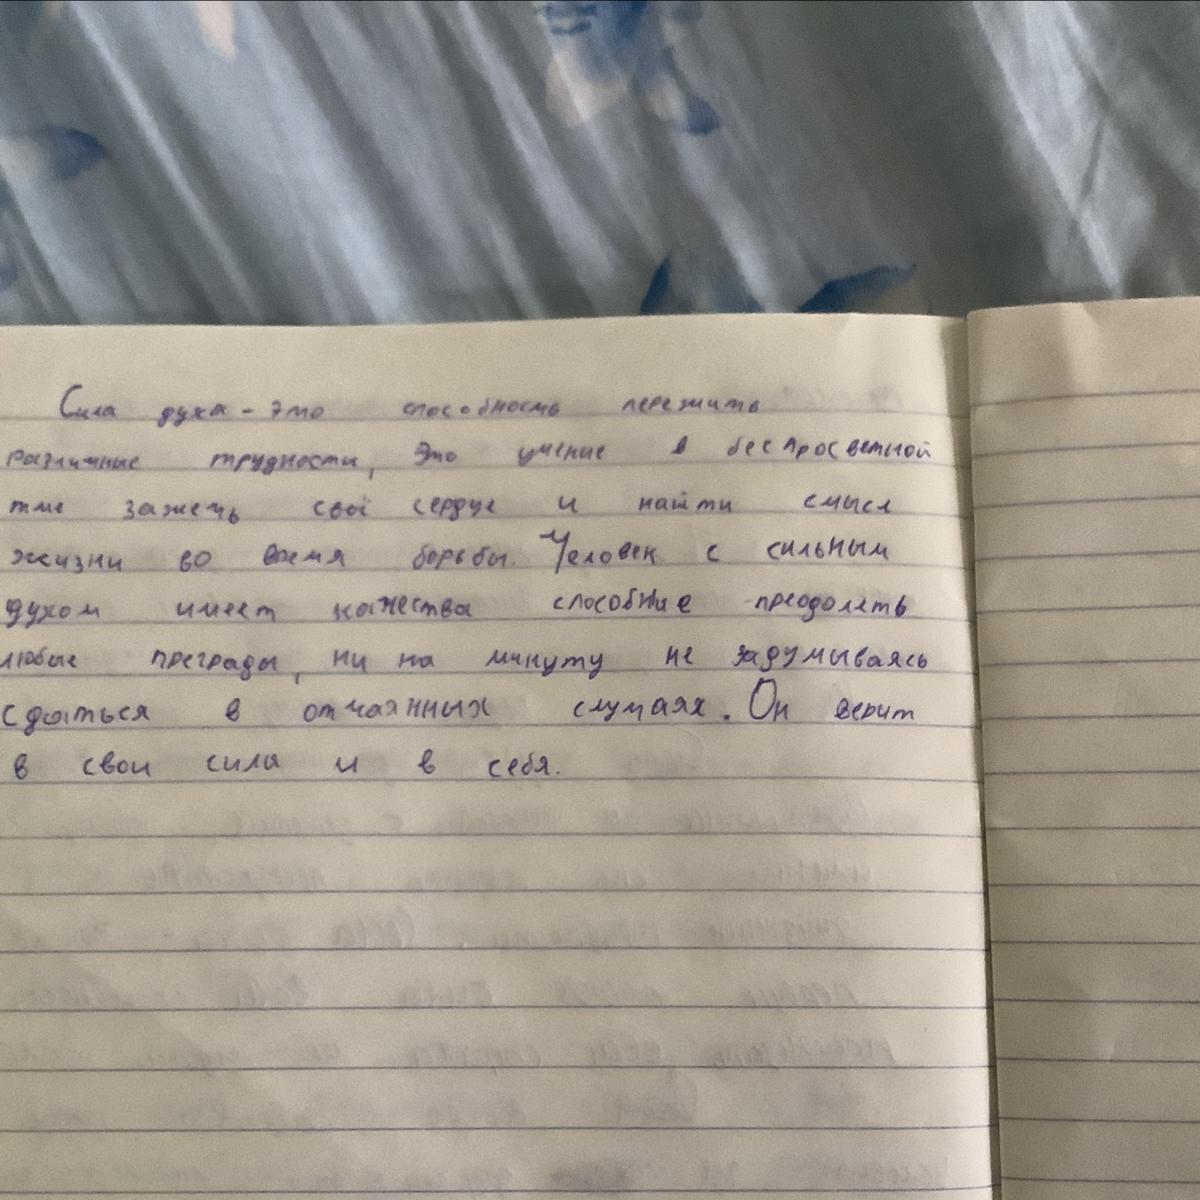 Сила духа - это способность пережить
различные трудности, Это умение в беспросветной
тме зажечь своё сердце и найти смысл
жизни во время борьбы. Человек с сильным
духом имеет качества способные преодолеть
любые преграды, ни на минуту не задумываясь
сдаться в отчаянных случаях. Он верит
в свои сила и в себя.